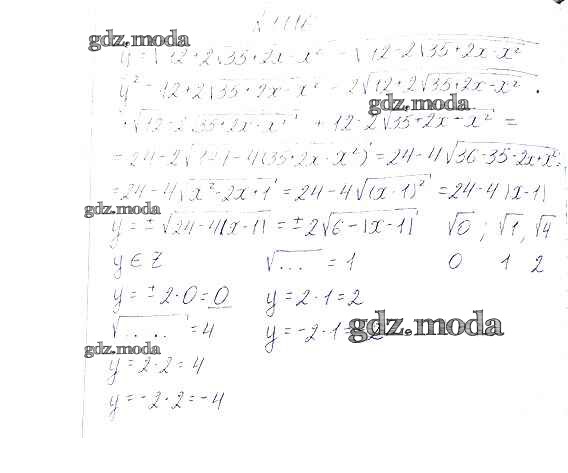 gdz.moda
y = √12+2√35+2x-x² - √12-2√35+2x-x²
y² = 12+2√35+2x-x² - 2√12+2√35+2x-x² ·
gdz.moda
· √12-2√35+2x-x² + 12-2√35+2x-x² =
= 24-2√144-4(35+2x-x²) = 24-4√36-35-2x+x² =
= 24-4√x²-2x+1 = 24-4√(x-1)² = 24-4|x-1|
gdz.moda
y = ±√24-4|x-1| = ±2√6-|x-1| √0; √1, √4
y ∈ Z √... = 1 0 1 2
y = ±2·0=0 y = 2·1=2
√... = 4 y = -2·1=-2
gdz.moda
gdz.moda
y = 2·2=4
y = -2·2=-4